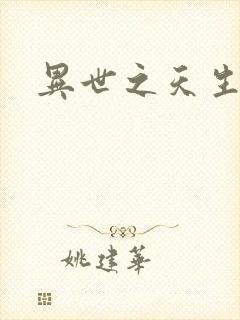 異世之天生
姚建華